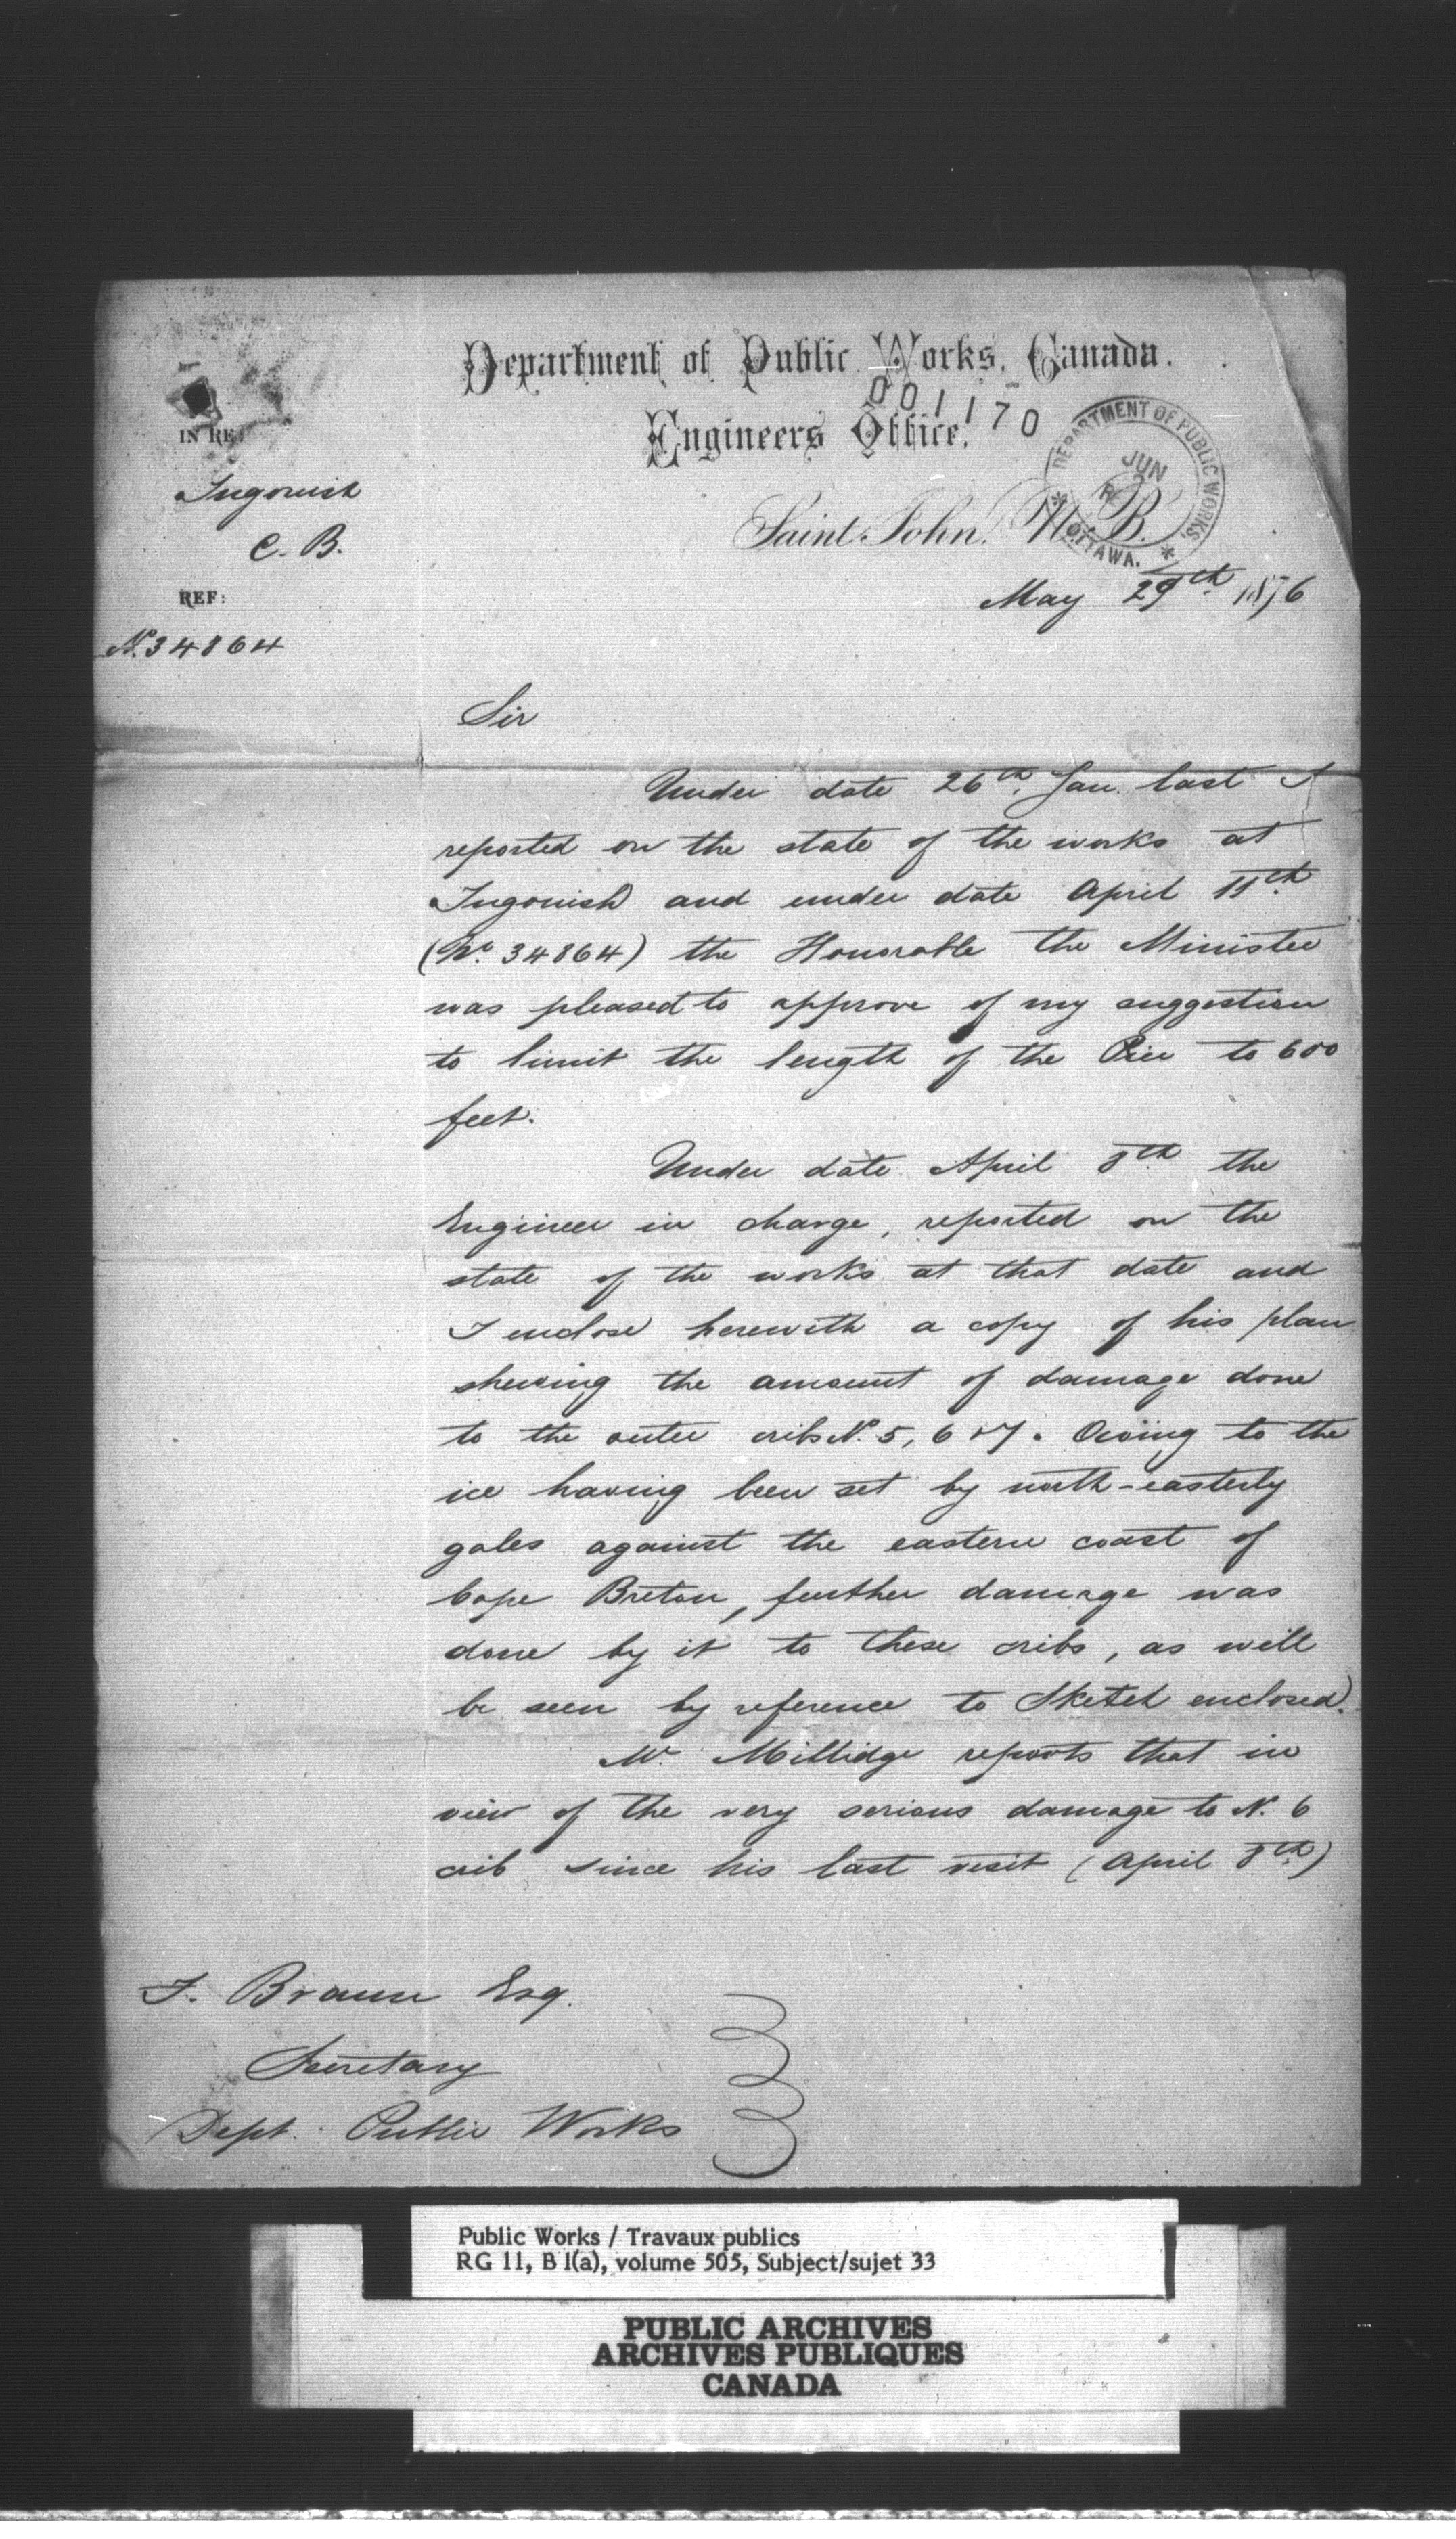 Department of Public Works, Canada.
001170
Engineers Office,
DEPARTMENT OF PUBLIC WORKS,
JUN
* OTTAWA. *
IN RE:
Ingonish
C. B.
Saint John, N. B.
May 29th 1876
REF:
No. 34864
Sir
Under date 26th Jan. last I
reported on the state of the works at
Ingonish and under date April 11th
(No. 34864) the Honorable the Minister
was pleased to approve of my suggestion
to limit the length of the Pier to 600
feet.
Under date April 8th the
Engineer in charge, reported on the
state of the works at that date and
I enclose herewith a copy of his plan
shewing the amount of damage done
to the outer cribs No. 5, 6 & 7. Owing to the
ice having been set by north-easterly
gales against the eastern coast of
Cape Breton, further damage was
done by it to these cribs, as will
be seen by reference to Sketch enclosed.
Mr. Millidge reports that in
view of the very serious damage to No. 6
crib since his last visit (April 8th)
F. Braun Esq.
Secretary
Dept. Public Works
Public Works / Travaux publics
RG 11, B 1(a), volume 505, Subject/sujet 33
PUBLIC ARCHIVES
ARCHIVES PUBLIQUES
CANADA